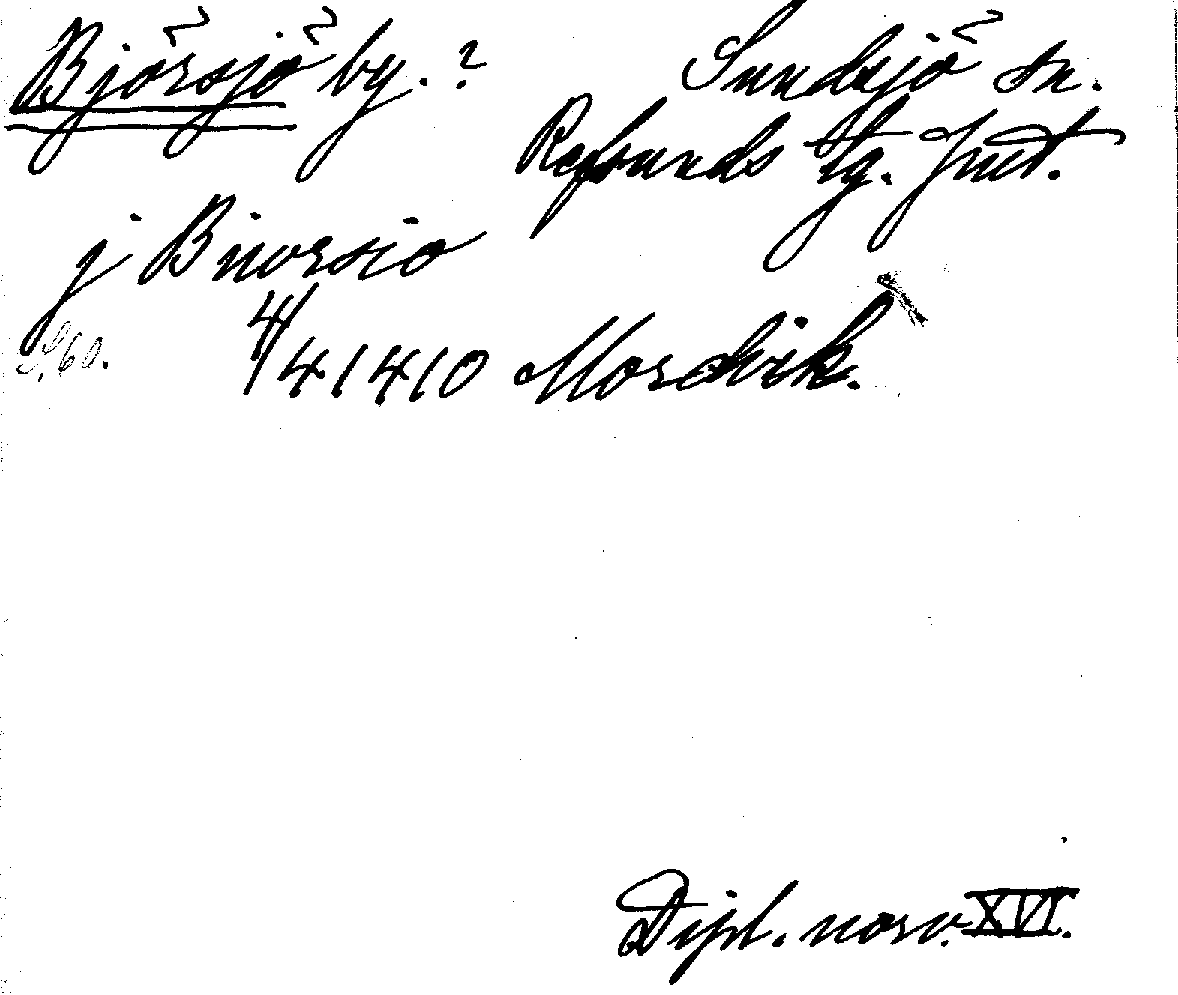 Björsjö by.? Sundsjö sn.
Refsunds tg. Jmt.
j Biuorsio
4/4 1410 Mordvik.
Dipl. norv. XVI.